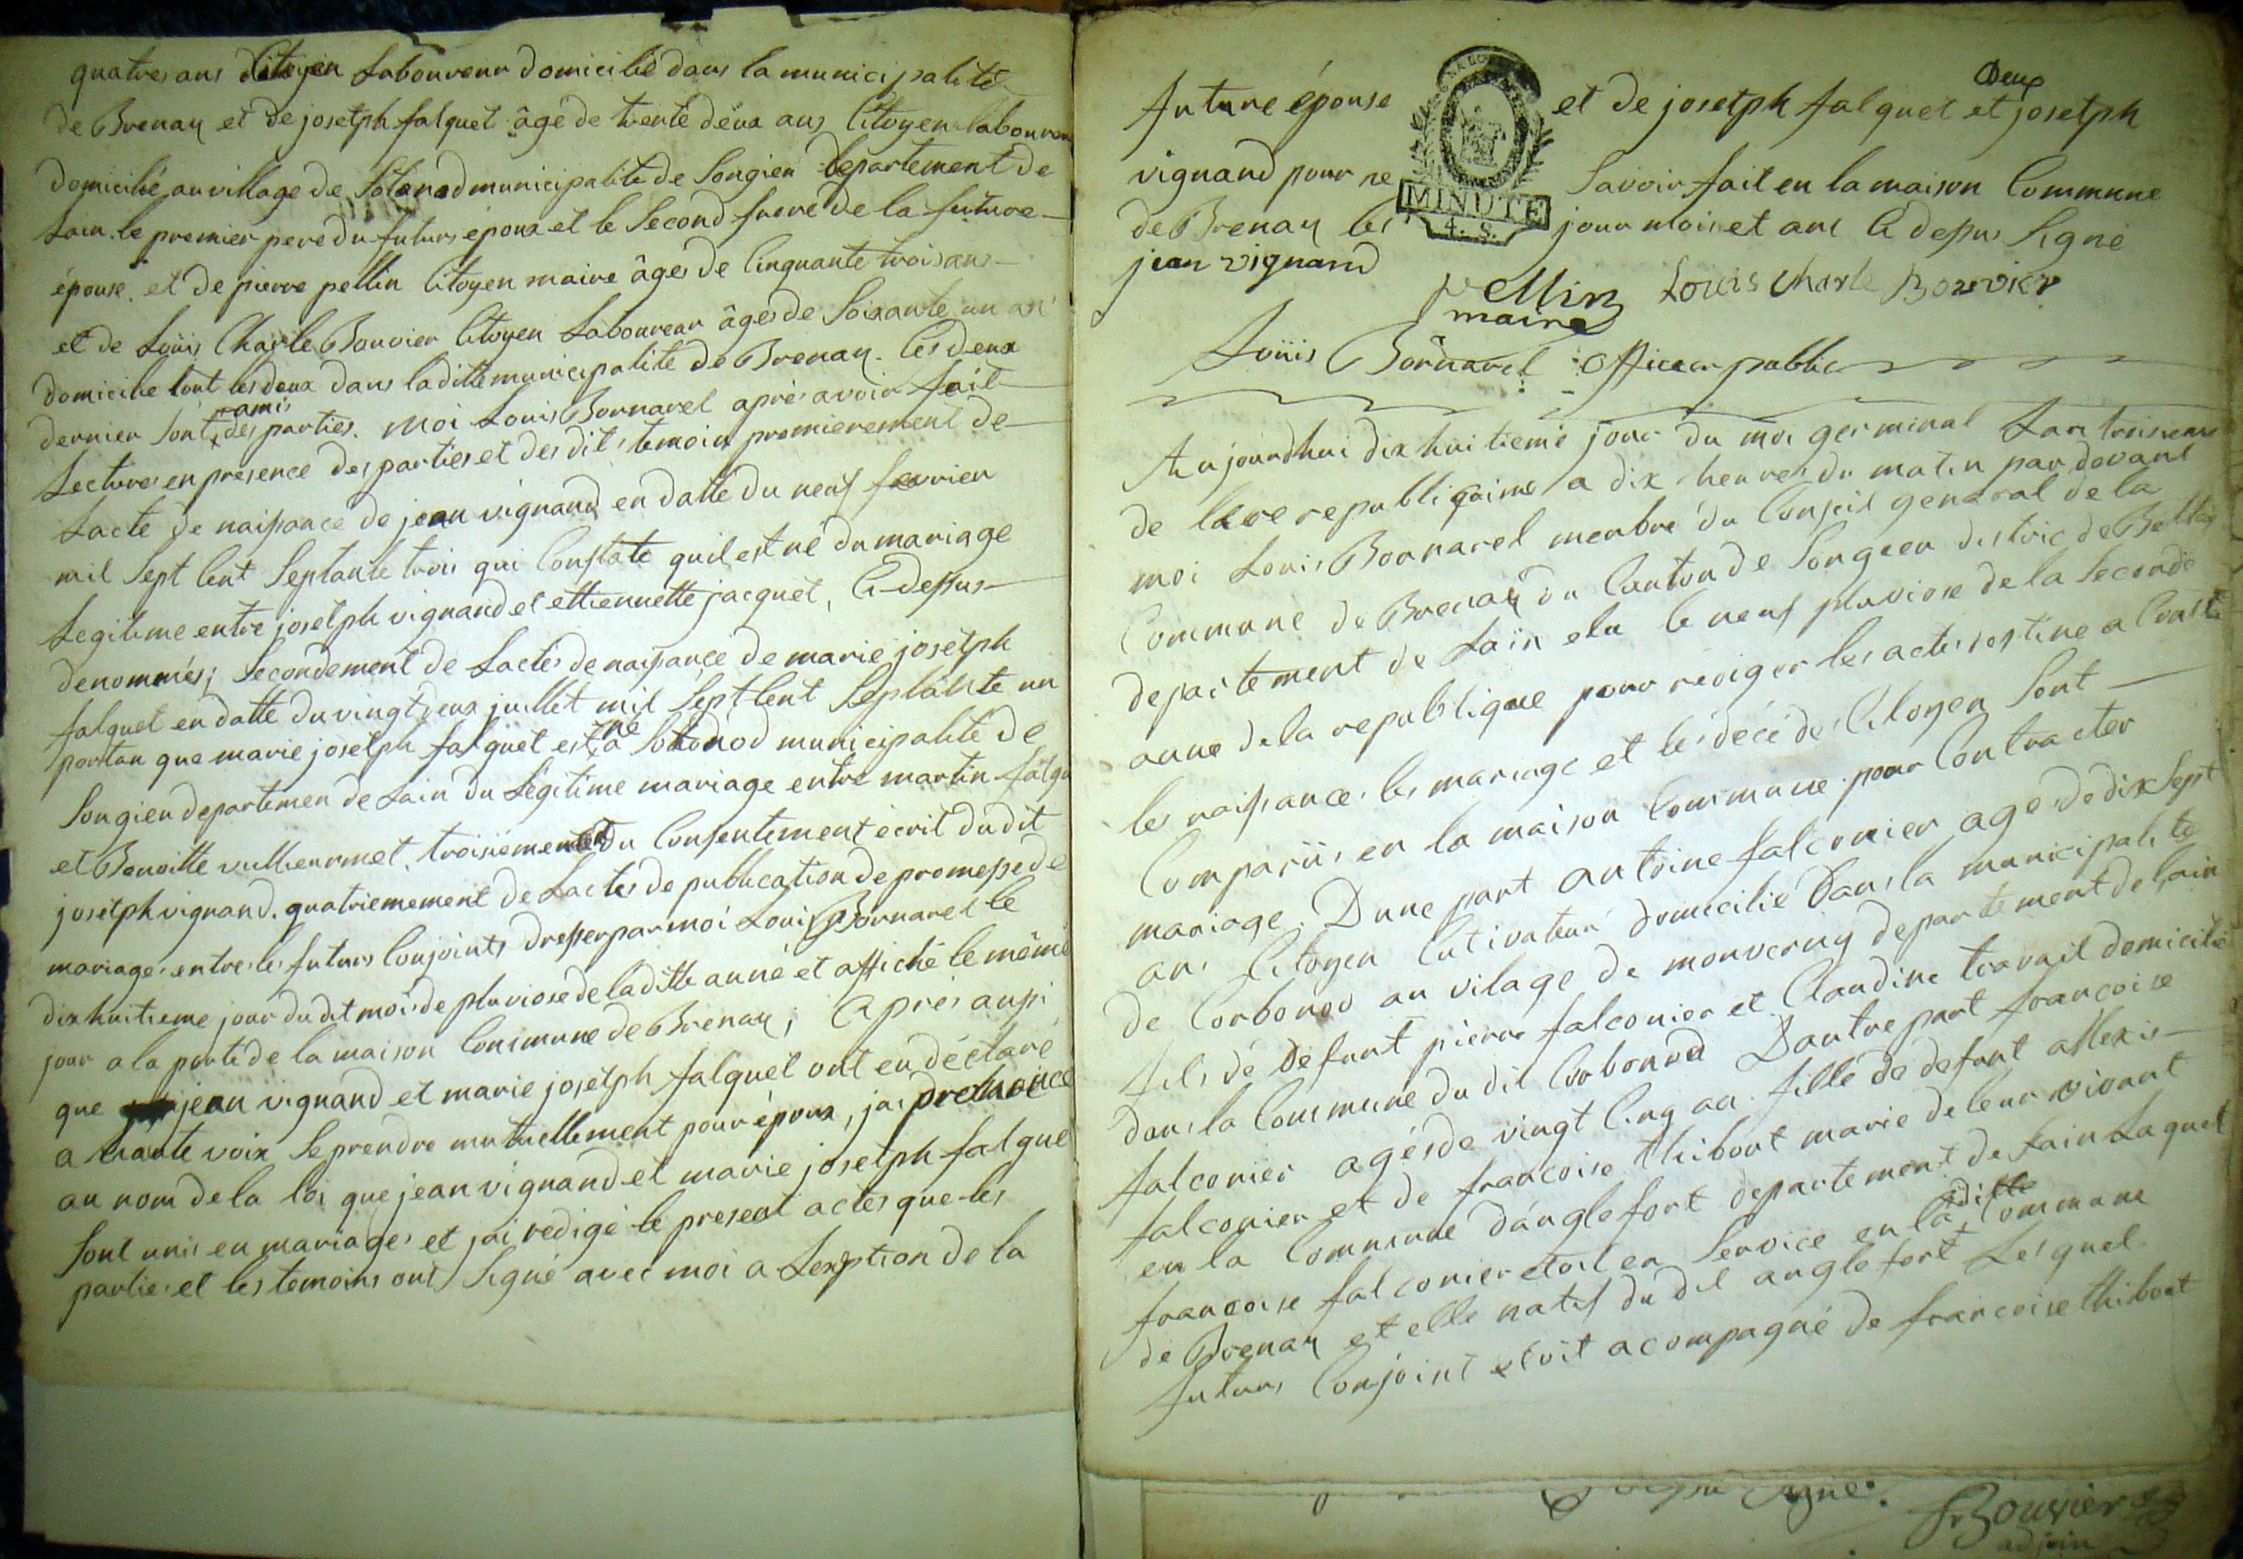 quatres ans Citoyen Laboureur domicilié dans la municipalité
de Brenay et de josetph falquet âge de trente deux ans Citoyen laboureur
domicilié au village de Sotonod municipalité de Songieu departement de
Lain. le premier pere du futurs époux et le Second frere de la future
épouse. et de pierre pellin Citoyen maire âges de Cinquante trois ans
et de Loüis Charle Bouvier Citoyen Laboureur âges de Soixante un an
domicilie tout les deux dans laditte municipalité de Brenay. Ces deux
dernier Sont amis des parties. Moi Louis Bornarel aprés avoir fait
Lectures en presence des parties et des dits temoin premierement de
Lacte de naissance de jean vignand en datte du neuf fevrier
mil Sept Cent Septante trois qui Constate quil est né du mariage
Legitime entre josetph vignand et ettiennette jacquet, Ci-dessus
denommés; Secondement de Lactes de naissance de marie josetph
falquet en datte du vingt deux juillet mil Sept Cent Septante un
portan que marie josetph falquet est né a Sotonod municipalité de
Songieu departemen de Lain du Légitime mariage entre martin falqu
et Benoitte vulliermet. troisiemement du Consentement ecrit du dit
josetph vignand. quatriemement de Lactes de publication de promesse de
mariages entre les futurs Conjoints dresser par moi Louis Bornarel le
dix huitieme jour du dit mois de pluviose de laditte anné et affiché le même
jour a la porte de la maison Commune de Brenay; Aprés aussi
que jean vignand et marie josetph falquet ont eu déclaré
a haute voix Se prendre mutuellement pour époux, jai prononcé
au nom de la loi que jean vignand et marie josetph falque
Sont unis en mariages et jai redigé le present actes que les
parties et les temoins ont Signé avec moi a Lexption de la
future épouse et de josetph falquet et Deux josetph
vignand pour ne Savoir fait en la maison Commune
MINUTE
4. S.
de Brenay les jour mois et ans Ci dessus Signé
jean vignand
pellin Louis Charle Bouvier
maire
Loüis Bornarel officier public
Aujourdhui dix huitieme jour du moi germinal Lan troisieme
de Lere republiqaine a dix heures du matin par devant
moi Louis Bornarel menbre du Conseil general de la
Commune de Brenay du Canton de Songieu distric de Belley
departement de Lain elu le neuf pluviose de la Seconde
anne de la republique pour rediger les actes destine a Constate
les naissances les mariage et les décé des Citoyen Sont
Comparüs en la maison Commune pour Contracter
mariage. Dune part antoine falconier ages de dix Sept
ans Citoyen Cutivateur domicilié Dans la municipalité
de Corbonod au vilage de monvernuy departement de Lain
fils de Defunt pierre falconier et Claudine travail domicilié
dans la Commune du dit Corbonod Dautre part francoise
falconier agésde vingt Cinq an fille de defunt allexis
falconier et de francoise thibout marie de leur vivant
en la Commune danglefort departement de Lain Laquel
francoise falconier etoit en Service en la ditte Commune
de Brenay et elle natif du dit anglefort Lesquel
futurs Conjoint etoit acompagné de francoise thibout
Signé.
Bouvier
adjoin